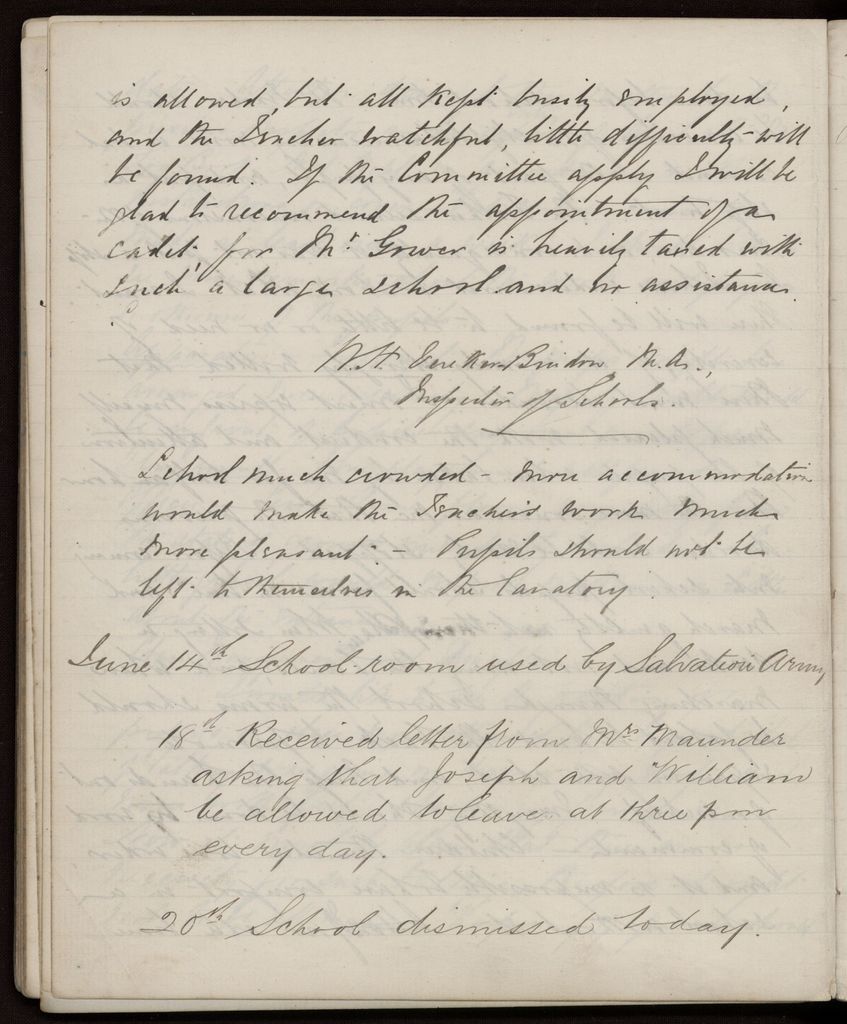 is allowed, but all kept busily employed,
and the Teacher watchful, little difficulty will
be found. If the Committee apply I will be
glad to recommend the appointment of a
cadet, for Mr. Gower is heavily taxed with
such a large school and no assistance.
W. H. Vereker-Bindon, M.A.,
Inspector of Schools.
School much crowded – more accommodation
would make the Teacher's work much
more pleasant. – Pupils should not be
left to themselves in the lavatory.
June 14th School-room used by Salvation Army
18th Received letter from Mrs Maunder
asking that Joseph and William
be allowed to leave at three pm
every day.
20th School dismissed today.